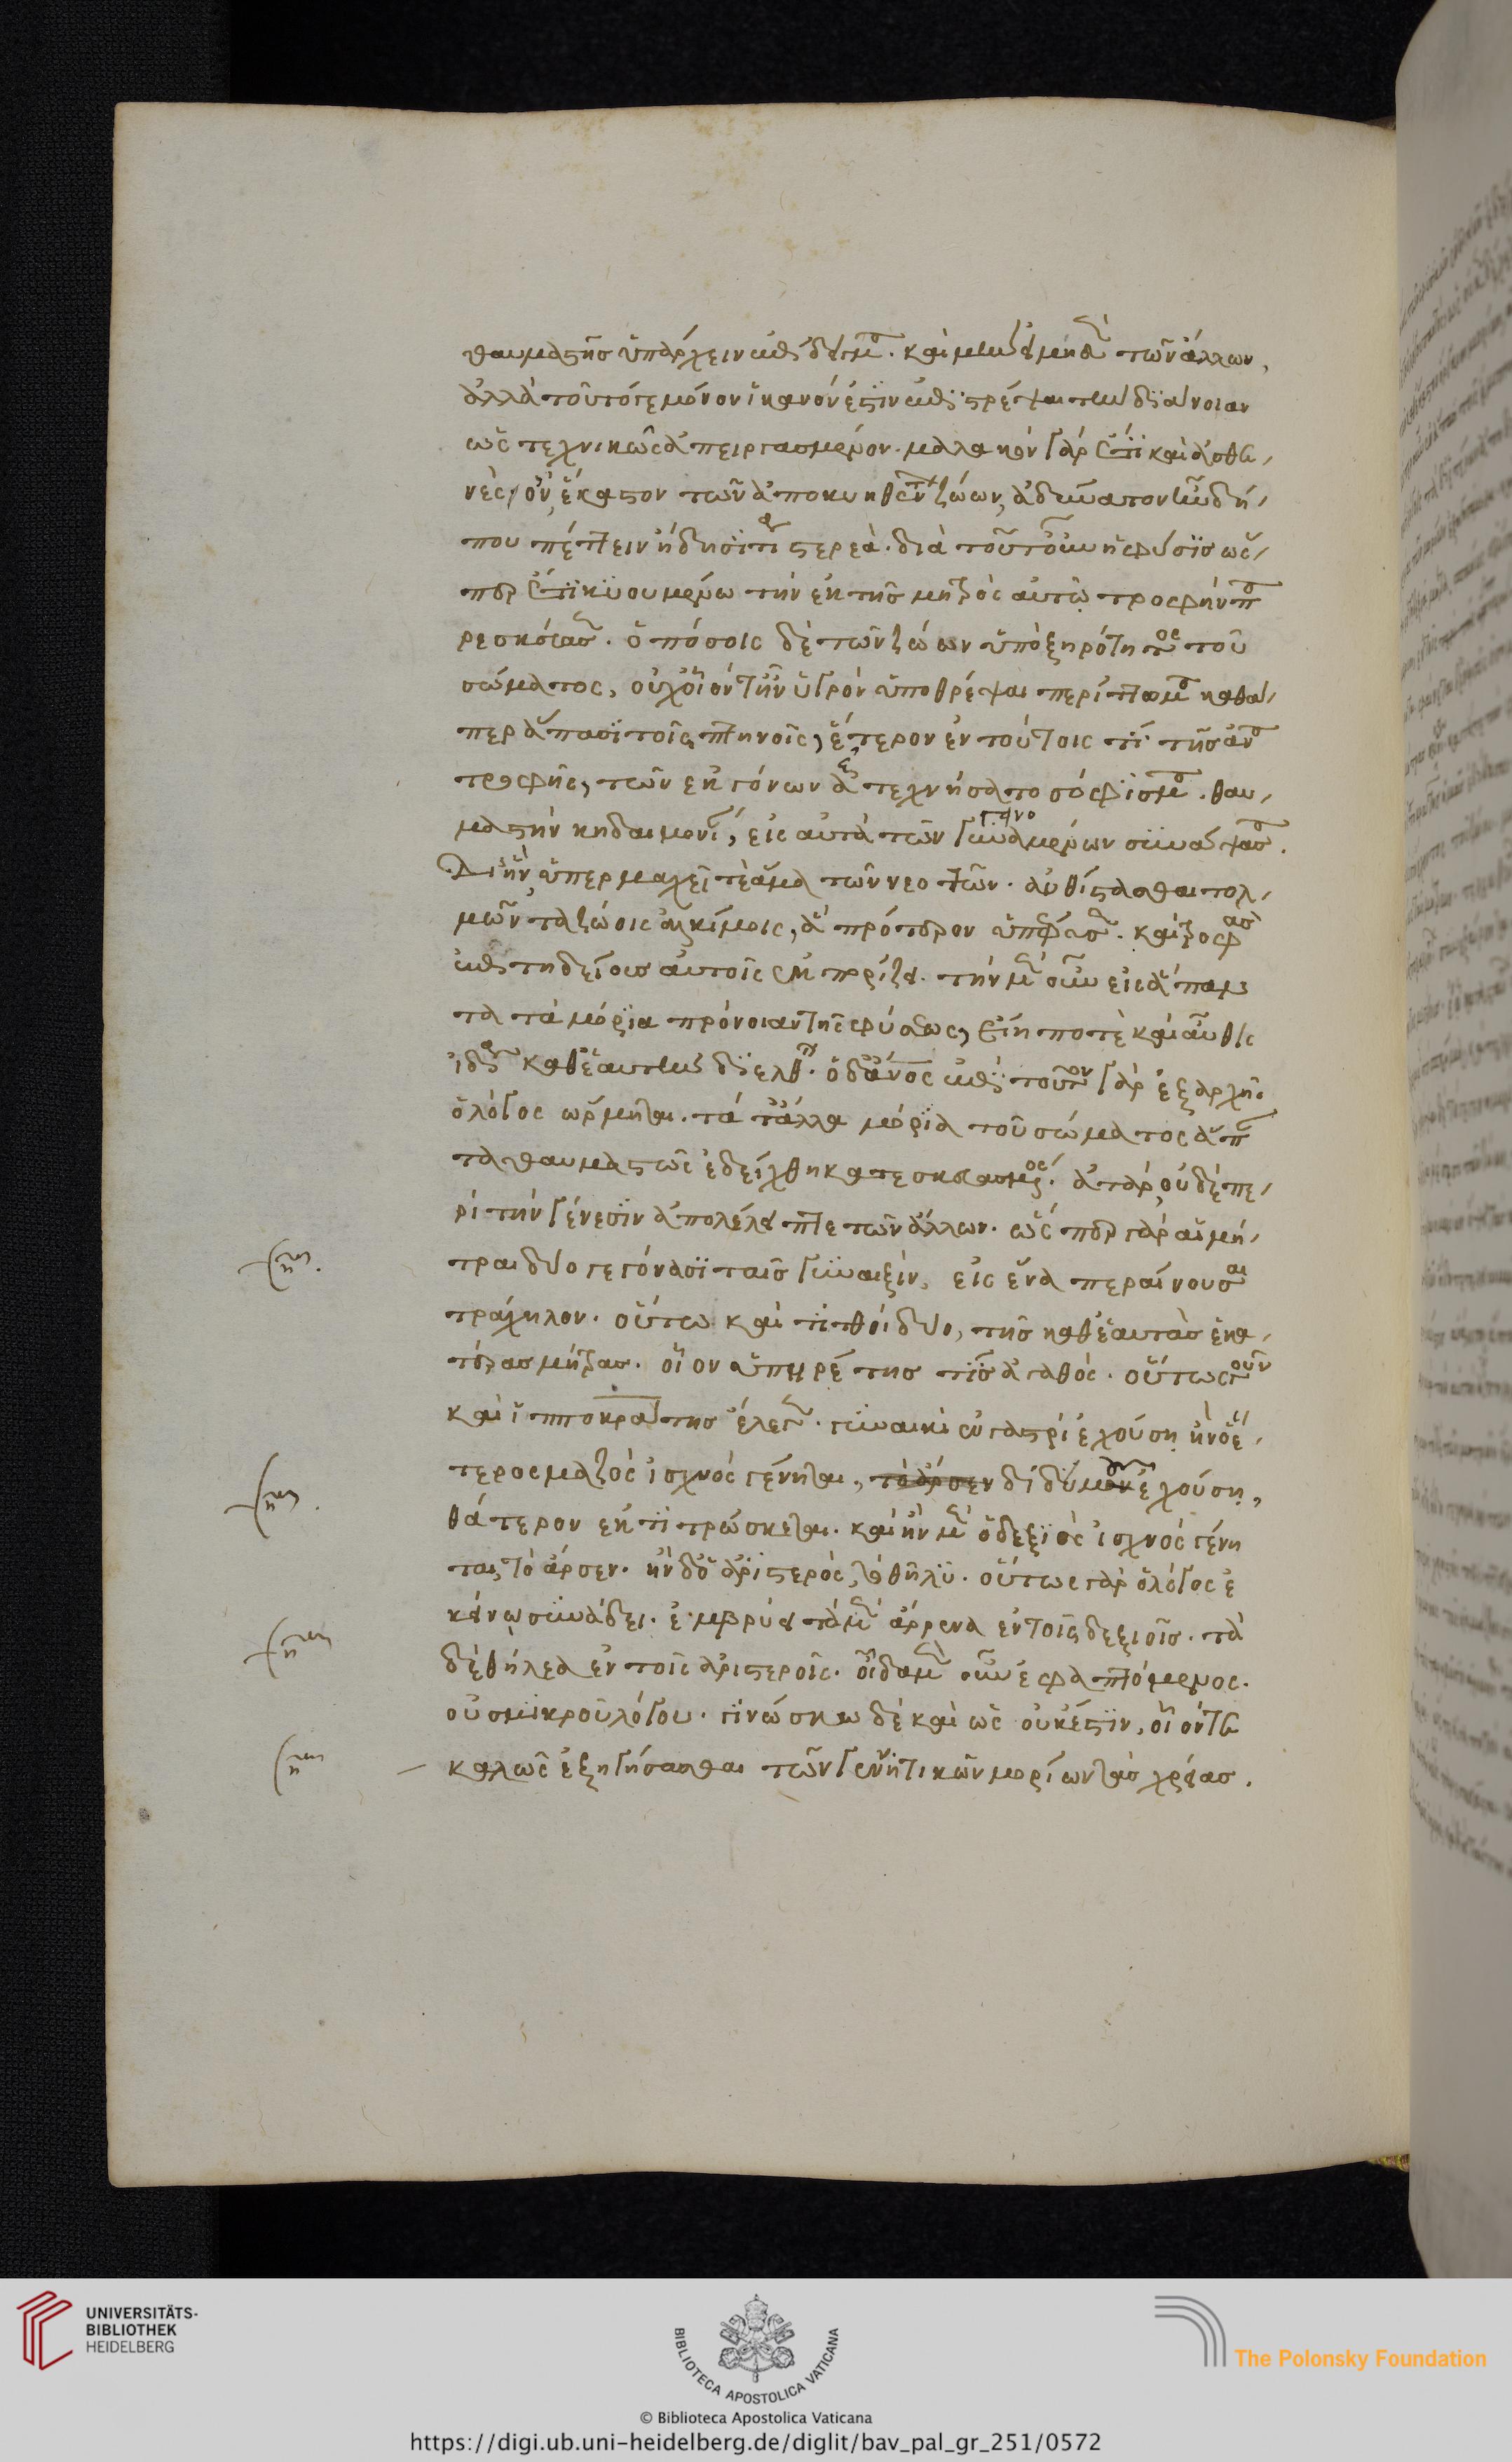 θαυμαστῆς ὑπάρχειν ἐπίδειγμα. καὶ μὲν εἰ μηδὲν τῶν ἄλλων,
ἀλλὰ τοῦτό γε μόνον ἱκανόν ἐστιν ἐπιστρέψαι τὴν διάνοιαν
ὡς τεχνικῶς ἀπειργασμένον. μαλακὸν γὰρ ἔτι καὶ ἀσθε
νὲς ὂν ἕκαστον τῶν ἀποκυηθέντων ζώων, ἀδύνατον ἦν δή
που πέττειν ἤδη σιτία στερεά. διὰ τοῦτ' οὖν ἡ φύσις ὥσ
περ ἔτι κυουμένω τὴν ἐκ τῆς μητρὸς αὐτῷ τροφὴν πα
ρεσκεύασεν. ὁπόσοις δὲ τῶν ζώων ὑπὸ ξηρότητος τοῦ
σώματος, οὐχ οἷόν τ' ἦν ὑγρὸν ὑποθρέψαι περίττωμα καθά
περ ἅπασι τοῖς πτηνοῖς, ἕτερον ἐν τούτοις τί τῆς ἀνα
τροφῆς, τῶν ἐκγόνων ἐτεχνήσατο σόφισμα. θαυ
μαστὴν κηδαιμονίαν, εἰς αὐτὰ τῶν
Δι' ἣν ὑπερμαχεῖ τὲ ἅμα τῶν νεοττῶν. ἀνθίστασθαι τολ
μῶντα ζώοις ἀλκίμοις, ἃ πρότερον καὶ τροφὰς
ἐπιτηδείους αὐτοῖς ἐκπορίζει. τὴν μὲν οὖν εἰς ἅπαν
τα τὰ μόρια πρόνοιαν τῆς φύσεως, εἴη ποτὲ καὶ αὖθις
ἰδίᾳ καθ' ἑαυτὴν διελθεῖν. ὁ δ' ἄνθρωπος ἐπὶ τοῦτον γὰρ ἐξ ἀρχῆς
ὁ λόγος ὥρμηται. τά τ' ἄλλα μόρια τοῦ σώματος ἅπαν
τα θαυμαστῶς ἐδείχθη κατεσκευασμένος. ἀτὰρ οὐδὲ πε
ρὶ τὴν γένεσιν ἀπολέλειπται τῶν ἄλλων. ὥσπερ γὰρ αἱ μή
τραι δύο γεγόνασι ταῖς γυναιξὶν, εἰς ἕνα περαίνουσαι
τράχηλον. οὕτω καὶ τιτθοὶ δύο, τῆς καθ' ἑαυτὰς ἑκα
τέρας μήτρας. οἷον ὑπηρέτης τίς ἀγαθός. οὕτως γοῦν
καὶ ἱπποκράτης ἔλεγεν. γυναικὶ ἐν γαστρὶ ἐχούσῃ ἢν ὁ ἕ
τερος μαζὸς ἰσχνὸς γένηται, τὸ ἄρσεν δίδυμα ἐχούσῃ,
θάτερον ἐκτιτρώσκεται. καὶ ἢν μὲν ὁ δεξιὸς ἰσχνὸς γένη
ται, τὸ ἄρσεν. ἢν δ' ὁ ἀριστερὸς, τὸ θῆλυ. οὕτως γὰρ ὁ λόγος ἐ
κείνῳ συνάδει. ἔμβρυα τὰ μὲν ἄρρενα ἐν τοῖς δεξιοῖς. τὰ
δὲ θήλεα ἐν τοῖς ἀριστεροῖς. οἶδα μὲν οὖν ἐφαπτόμενος.
οὐ σμικροῦ λόγου. γινώσκω δὲ καὶ ὡς οὐκ ἔστιν, οἷόν τε
καλῶς ἐξηγήσασθαι τῶν γεννητικῶν μορίων τὰς χρείας.
UNIVERSITÄTS-
BIBLIOTHEK
HEIDELBERG
BIBLIOTECA APOSTOLICA VATICANA
The Polonsky Foundation
© Biblioteca Apostolica Vaticana
https://digi.ub.uni-heidelberg.de/diglit/bav_pal_gr_251/0572